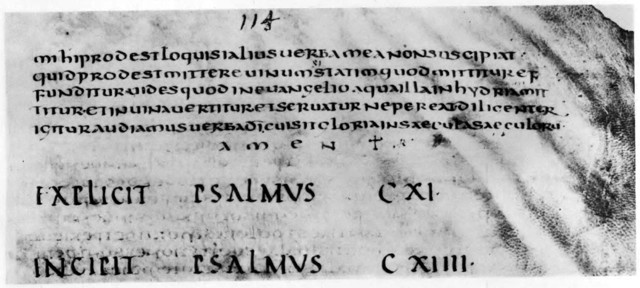 114
mihiprodestloquisialiusuerbameanonsuscipiat
quidprodestmittereuinumstatimquodmittituref
si
funditur uidesquodineuangelioaquaillainhydriamit
titur·etinuinauertituretseruaturnepereatdiligenter
igituraudiamusuerbadicuisitgloriainsaeculasaeculoru
amen †
EXPLICIT PSALMVS CXI·
INCIPIT PSALMVS CXIIII·